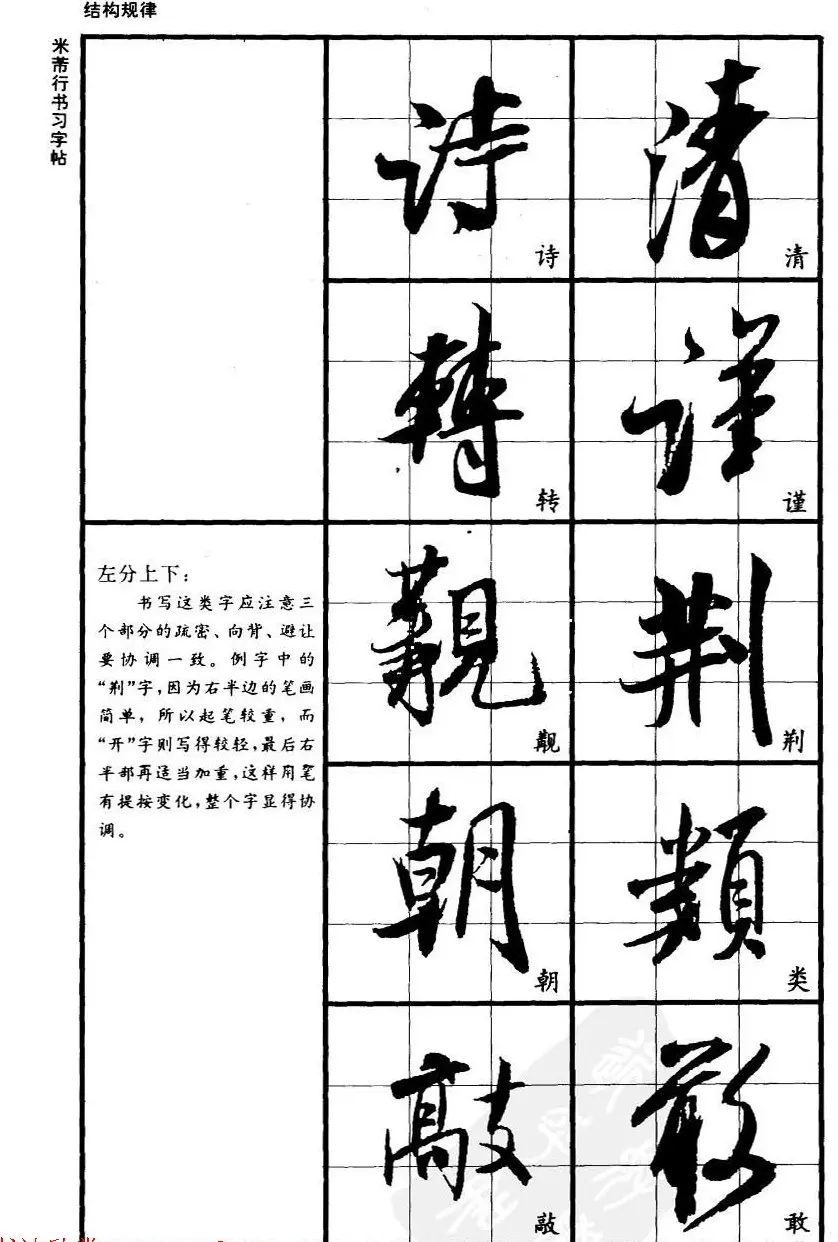 结构规律
米芾行书习字帖
清
诗
谨
转
左分上下：
书写这类字应注意三
个部分的疏密、向背、避让
要协调一致。例字中的
“荆”字，因为右半边的笔画
简单，所以起笔较重，而
“开”字则写得较轻，最后右
半部再适当加重，这样用笔
有提按变化，整个字显得协
调。
荆
觏
类
朝
敢
敲
清
詩
謹
轉
荆
覯
類
朝
敢
敲